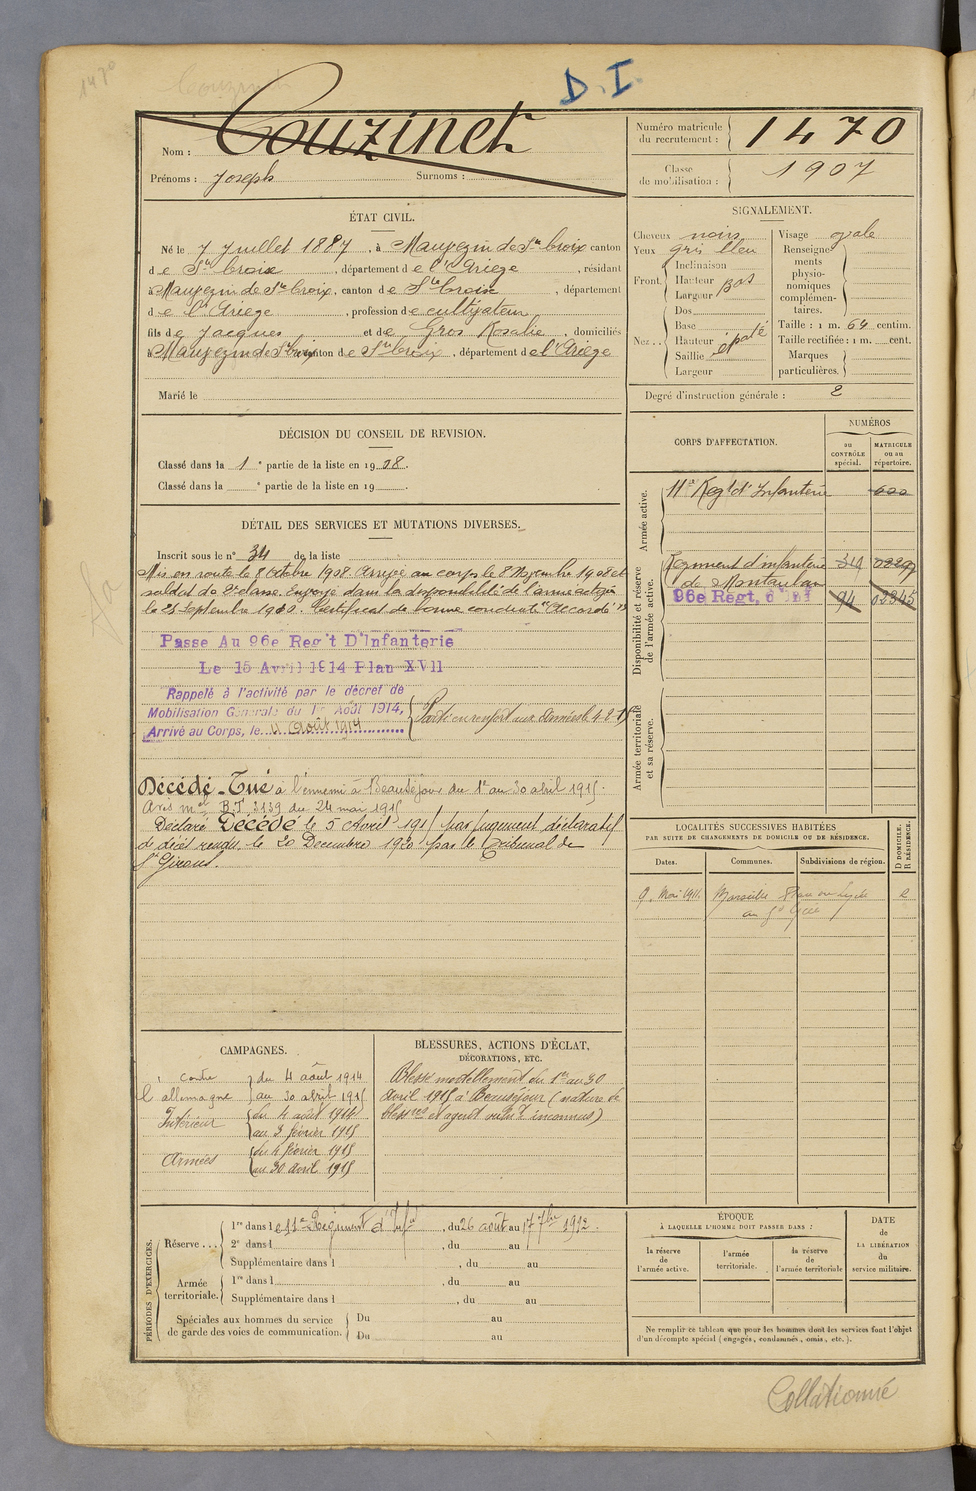 1470
Couzinet
D. I.
Nom : Couzinet
Prénoms : Joseph Surnoms :
Numéro matricule du recrutement : 1470
Classe de mobilisation : 1907
ÉTAT CIVIL.
Né le 7 Juillet 1887, à Mauvezin de Ste Croix canton
de Ste Croix, département de l'Ariège, résidant
à Mauvezin de Ste Croix, canton de Ste Croix, département
de l'Ariège, profession de cultivateur
fils de Jacques et de Gros Rosalie, domiciliés
à Mauvezin de Ste Croix canton de Ste Croix, département de l'Ariège
Marié le
SIGNALEMENT.
Cheveux noirs
Yeux gris bleu
Front. Inclinaison
Hauteur bas
Largeur
Nez.. Dos
Base
Hauteur épaté
Saillie
Largeur
Visage ovale
Renseignements physionomiques complémentaires.
Taille : 1 m. 64 centim.
Taille rectifiée : 1 m. cent.
Marques particulières.
Degré d'instruction générale : 2
DÉCISION DU CONSEIL DE REVISION.
Classé dans la 1e partie de la liste en 1908.
Classé dans la e partie de la liste en 19 .
CORPS D'AFFECTATION.
NUMÉROS
au CONTRÔLE spécial.
MATRICULE ou au répertoire.
Armée active.
11e Regt d'Infanterie
Disponibilité et réserve de l'armée active.
Régiment d'infanterie 02297
de Montauban
96e Régt. d'Inf 94 02345
Armée territoriale et sa réserve.
DÉTAIL DES SERVICES ET MUTATIONS DIVERSES.
Inscrit sous le n° 34 de la liste
Mis en route le 8 Octobre 1908. Arrivé au corps le 8 Octobre 1908 et
soldat de 2e classe. Envoyé dans la disponibilité de l'armée active
le 25 septembre 1910. Certificat de bonne conduite "Accordé"
Passe Au 96e Reg't D'Infanterie
Le 15 Avril 1914 Plan XVII
Rappelé à l'activité par le décret de
Mobilisation Générale du 1er Août 1914,
Arrivé au Corps, le 4 Août 1914
Parti en renfort aux Armées le 4-2-15
Décédé - Tué à l'ennemi à Beauséjour du 1er au 30 abril 1915.
Avis mel B.T. 3139 du 24 mai 1915
Déclaré Décédé le 5 Avril 1915 par jugement déclaratif
de décès rendu le 20 Decembre 1920 par le Tribunal de
St Girons.
LOCALITÉS SUCCESSIVES HABITÉES
PAR SUITE DE CHANGEMENTS DE DOMICILE OU DE RÉSIDENCE.
Dates. Communes. Subdivisions de région. D DOMICILE. R RÉSIDENCE.
9 Mai 1911 Marseille R
au gd Lycée
CAMPAGNES.
contre l'allemagne du 4 août 1914
au 30 abril 1915
Intérieur du 4 août 1914
au 3 février 1915
Armées du 4 février 1915
au 30 avril 1915
BLESSURES, ACTIONS D'ÉCLAT,
DÉCORATIONS, ETC.
Blessé mortellement du 1er au 30
Avril 1915 à Beauséjour (nature de
blessures et agent vulnt inconnus)
PÉRIODES D'EXERCICES.
Réserve.... 1re dans le 11e Régiment d'Infie, du 26 août au 17 7bre 1912.
2e dans l , du au
Supplémentaire dans l , du au
Armée territoriale. 1re dans l , du au
Supplémentaire dans l , du au
Spéciales aux hommes du service de garde des voies de communication. Du au
Du au
ÉPOQUE
À LAQUELLE L'HOMME DOIT PASSER DANS :
la réserve de l'armée active.
l'armée territoriale.
la réserve de l'armée territoriale
DATE de LA LIBÉRATION du service militaire.
Ne remplir ce tableau que pour les hommes dont les services font l'objet
d'un décompte spécial (engagés, condamnés, omis, etc.).
Collationné